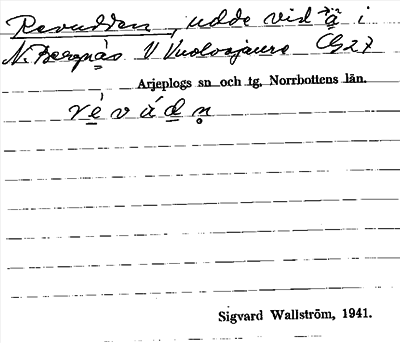 Revudden, udde vid å i
N. Bergnäs V Vuolvojaure C27
Arjeplogs sn och tg. Norrbottens län.
rèvádn̥
Sigvard Wallström, 1941.